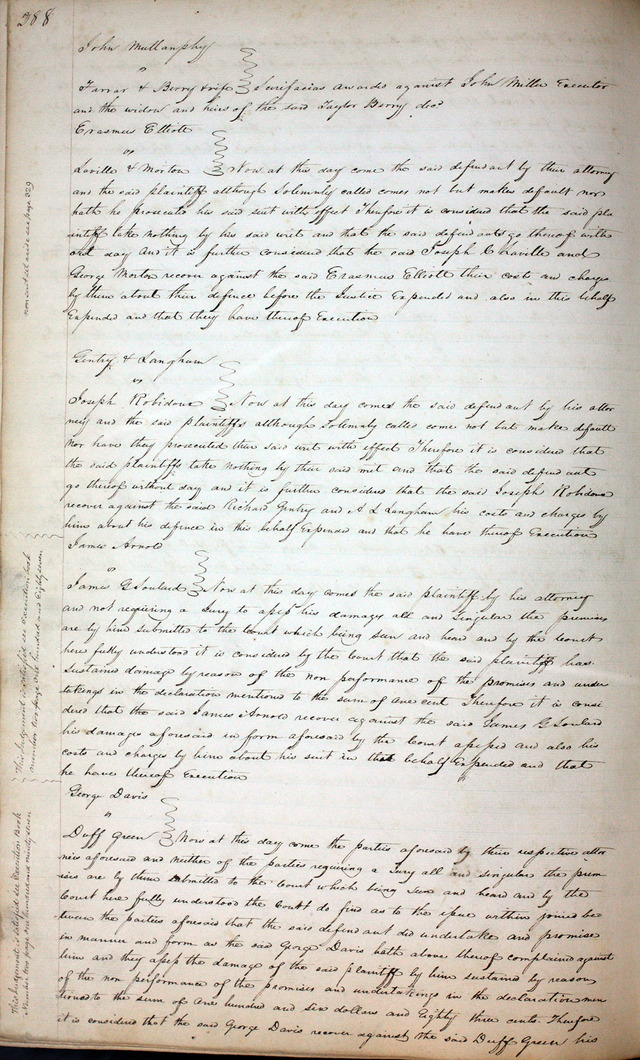 388
John Mullanphy
vs
Farrar & Berry & wife Scirifacias awarded against John Miller Executor
and the widow and heirs of the said Taylor Berry decd
Erasmus Elliott
vs
Laville & Morton Now at this day come the said defendant by their attorney
and the said plaintiff although Solemnly called comes not but makes default nor
hath he prosecuted his said suit with effect Therefore it is considered that the said pla
intiff take nothing by his said writ and that the said defendants go thereof with
out day and it is further considered that the said Joseph C Laville and
George Morton recover against the said Erasmus Elliott their costs and charges
by them about their defence before the Justice Expended and also in this behalf
Expended and that they have thereof Execution
non est vide see page 329
Gentry & Langham
vs
Joseph Robidoux Now at this day comes the said defendant by his attor
ney and the said plaintiffs although Solemnly called come not but make default
nor have they prosecuted their said writ with effect Therefore it is considered that
the said plaintiffs take nothing by their said writ and that the said defendant
go thereof without day and it is further considered that the said Joseph Robidoux
recover against the said Richard Gentry and A L Langham his costs and charges by
him about his defence in this behalf Expended and that he have thereof Execution
James Arnold
vs
James G Soulard Now at this day comes the said plaintiff by his attorney
and not requiring a Jury to assess his damages all and singular the premises
are by him submitted to the Court which being seen and heard and by the Court
here fully understood it is considered by the Court that the said plaintiff has
Sustained damage by reason of the non performance of the promises and under
takings in the declaration mentioned to the sum of one cent Therefore it is consi
dered that the said James Arnold recover against the said James G Soulard
his damages aforesaid in form aforesaid by the Court assessed and also his
costs and charges by him about his suit in that behalf Expended and that
he have thereof Execution
This Judgement is satisfied see execution book
number two page one hundred and Eighty seven
George Davis
vs
Duff Green Now at this day come the parties aforesaid by their respective attor
nies aforesaid and neither of the parties requiring a Jury all and singular the prem
ises are by them submitted to the Court which being seen and heard and by the
Court here fully understood the Court do find as to the issue within joined be
tween the parties aforesaid that the said defendant did undertake and promise
in manner and form as the said George Davis hath above thereof complained against
him and they assess the damage of the said plaintiff by him sustained by reason
of the non performance of the promises and undertakings in the declaration men
tioned to the sum of one hundred and six dollars and Eighty three cents Therefore
it is considered that the said George Davis recover against the said Duff Green his
This Judgement is satisfied see Execution Book
Number two page one hundred and ninety seven